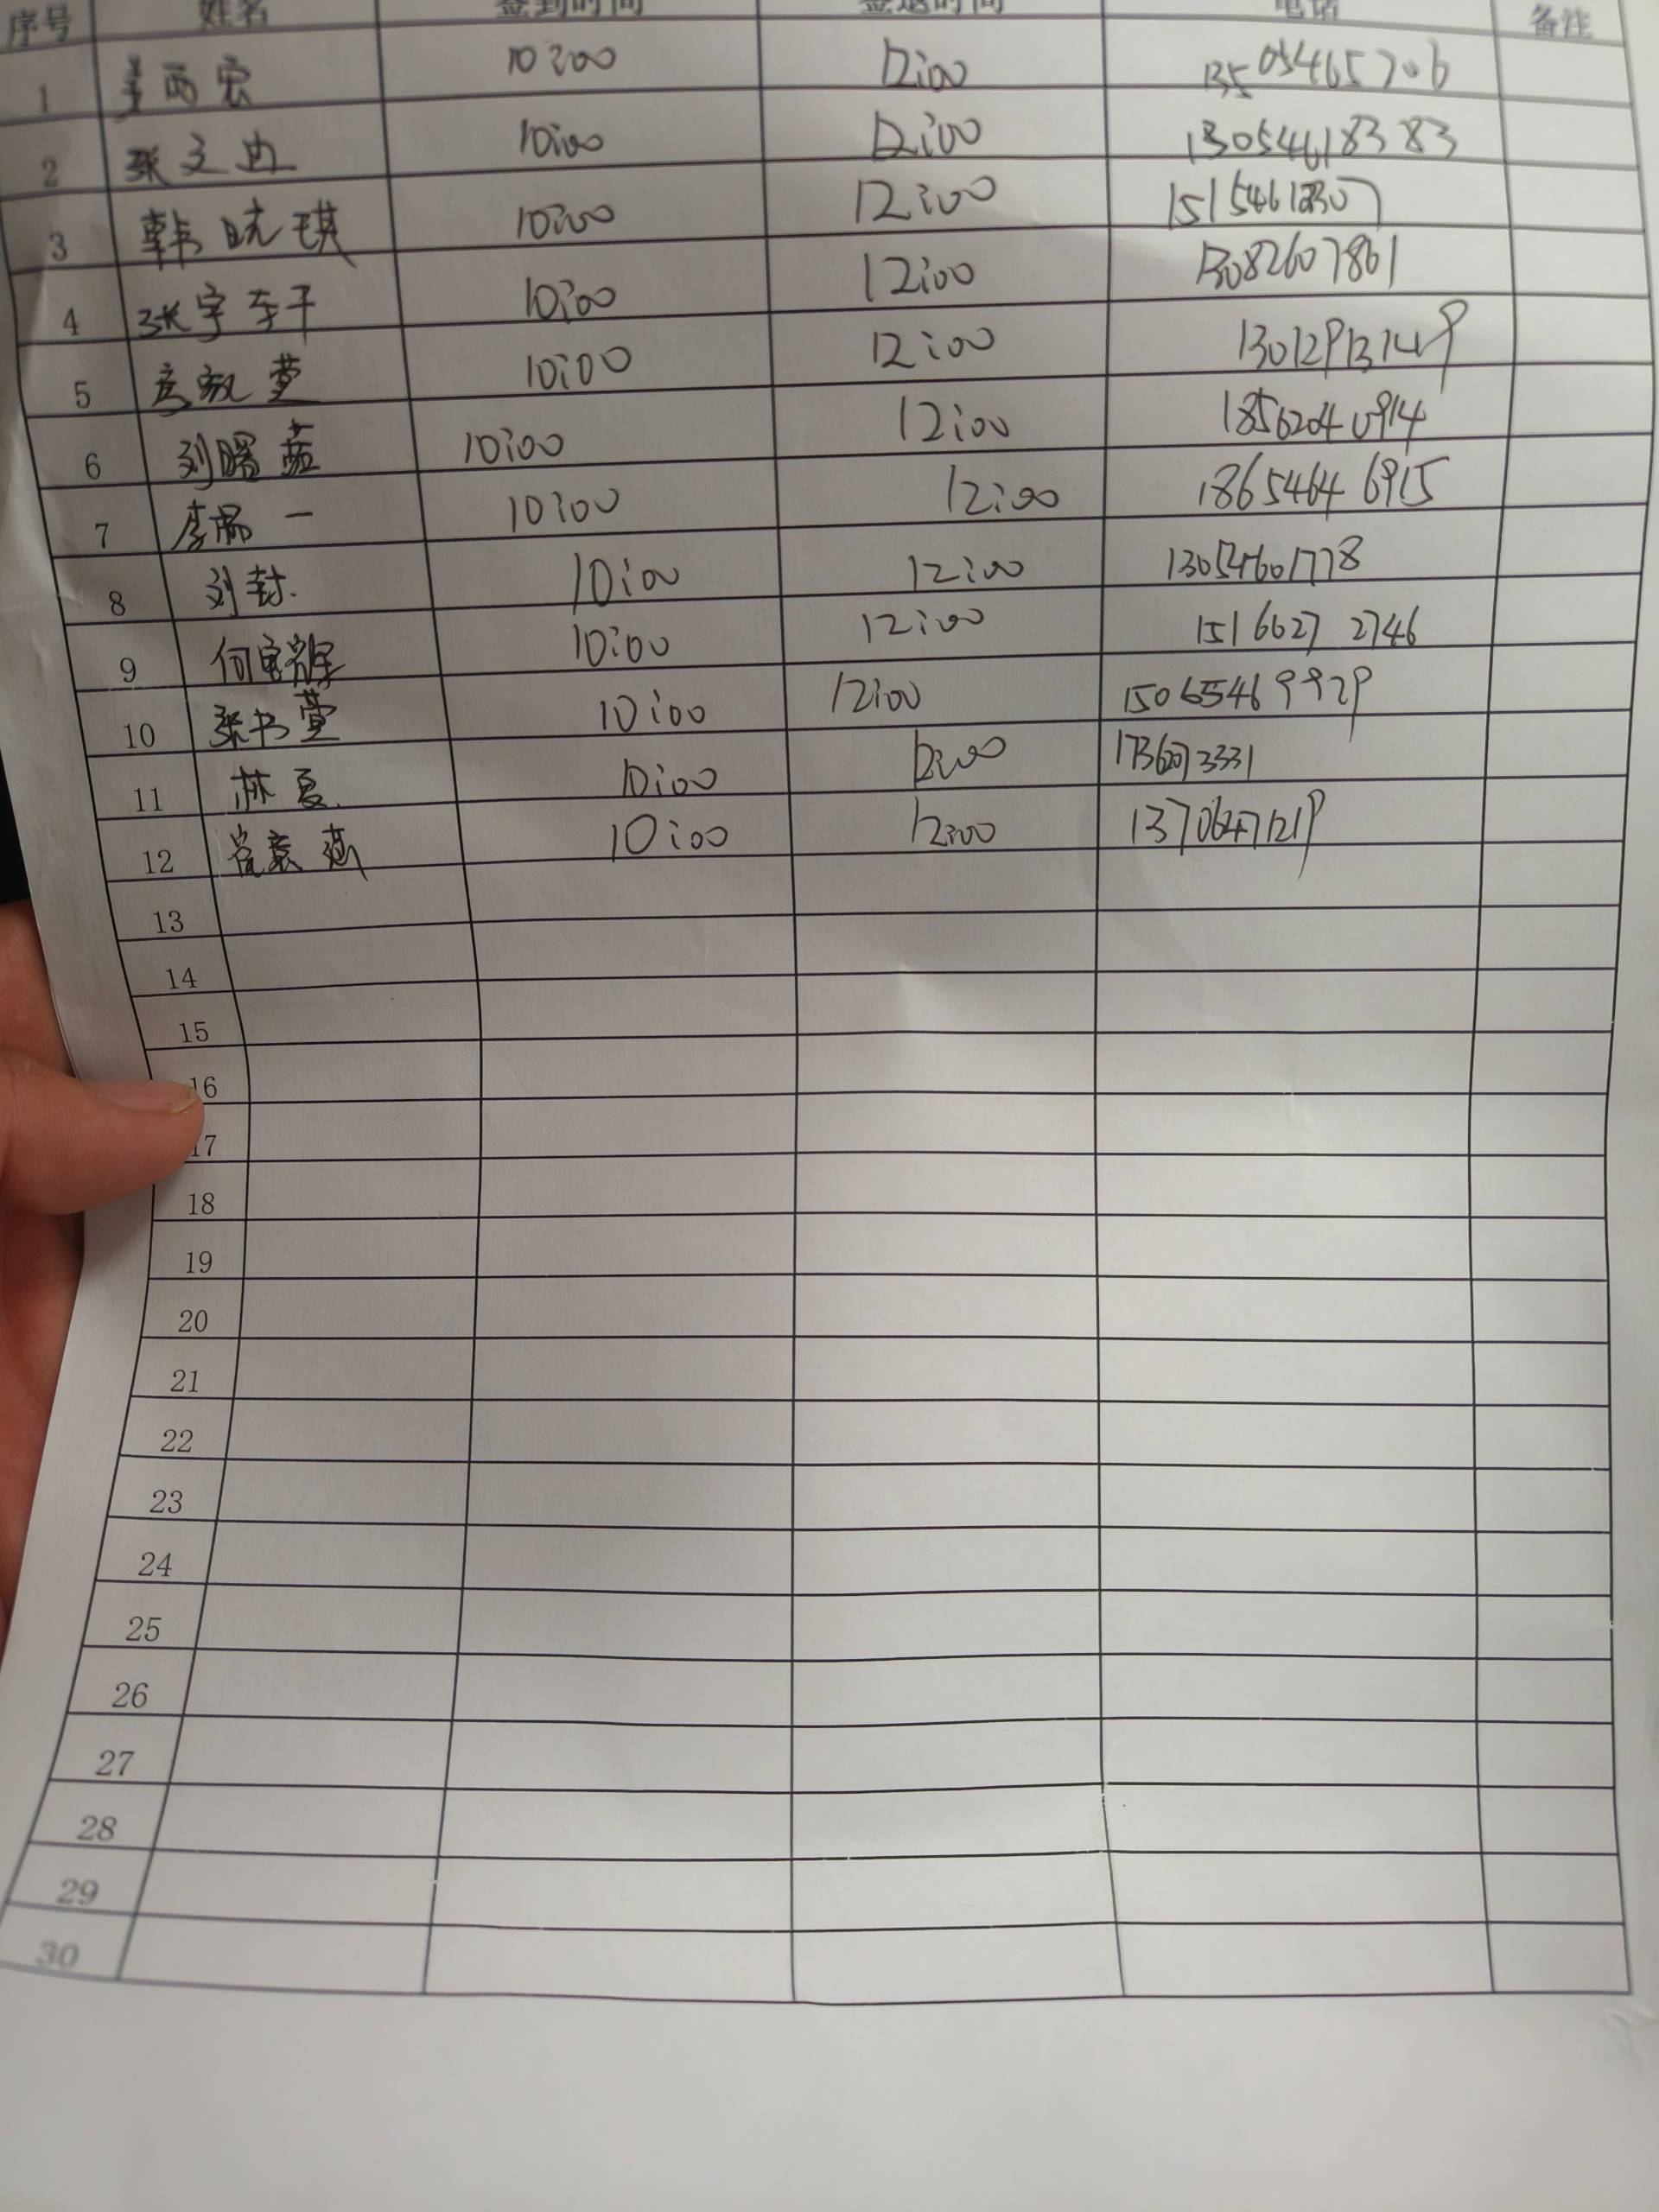 序号 姓名 签到时间 签退时间 电话 备注
1 10:00 12:00 13505465706
2 张文迪 10:00 12:00 13054618383
3 韩晓琪 10:00 12:00
4 张宇轩 10:00 12:00 13082607861
5 10:00 12:00 13012913749
6 刘曙蓝 10:00 12:00 18562040914
7 李雨一 10:00 12:00 18654646915
8 刘封 10:00 12:00 13054601778
9 何 10:00 12:00 15166272746
10 张书萱 10:00 12:00 15065469929
11 林夏 10:00 12:00
12 10:00 12:00 13706471219
13
14
15
16
17
18
19
20
21
22
23
24
25
26
27
28
29
30